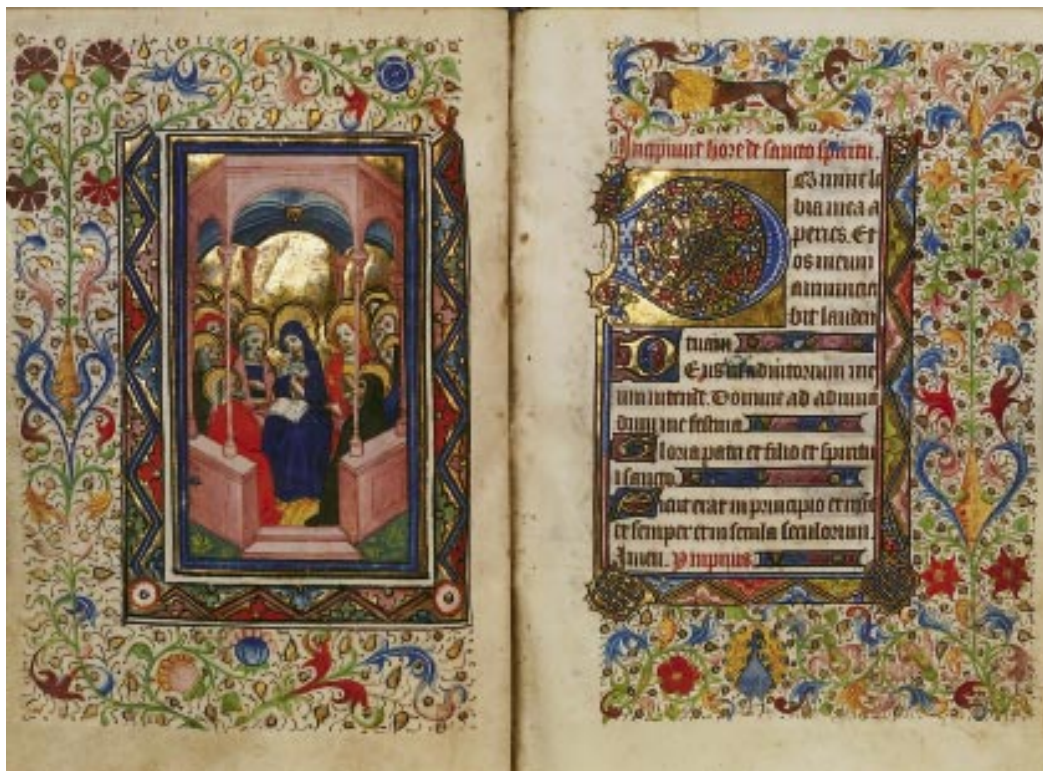 Incipiunt hore de sancto spiritu.
Domine la
bia mea a
peries. Et
os meum
annuncia
bit laudem
tuam
Deus in adiutorium me
um intende. Domine ad adiuua
dum me festina
Gloria patri et filio et spiritu
i sancto.
Sicut erat in principio et nunc
et semper et in secula seculorum.
Amen. Ympnus.